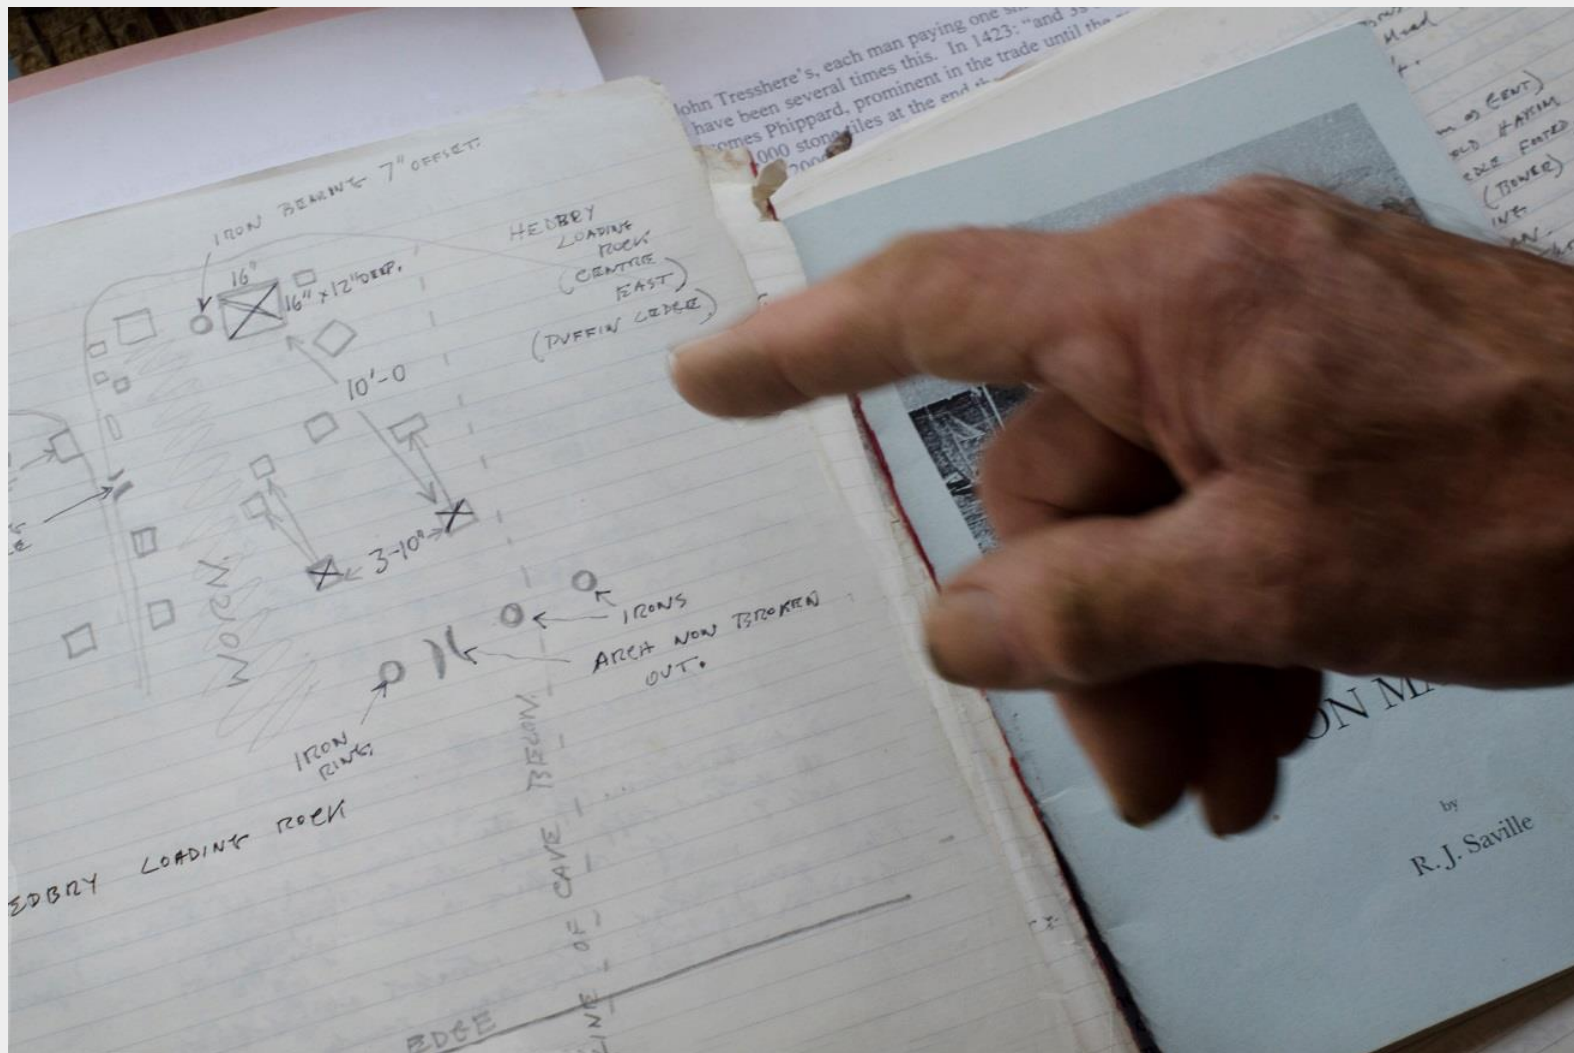 John Tresshere's, each man paying one
have been several times this. In 1423: "and
omes Phippard, prominent in the trade until the
000 stone tiles at the end
200
IRON BEARING 7" OFFSET.
HEDBRY
LOADING
ROCK
(CENTRE
EAST)
(PUFFIN LEDGE)
16"
16" x 12" DEEP.
10'-0
3-10"
WORN
IRONS
ARCH NOW BROKEN
OUT.
IRON
RING.
EDBRY LOADING ROCK
LINE OF CAVE BELOW.
EDGE
ON MA
by
R. J. Saville
(BOWER)